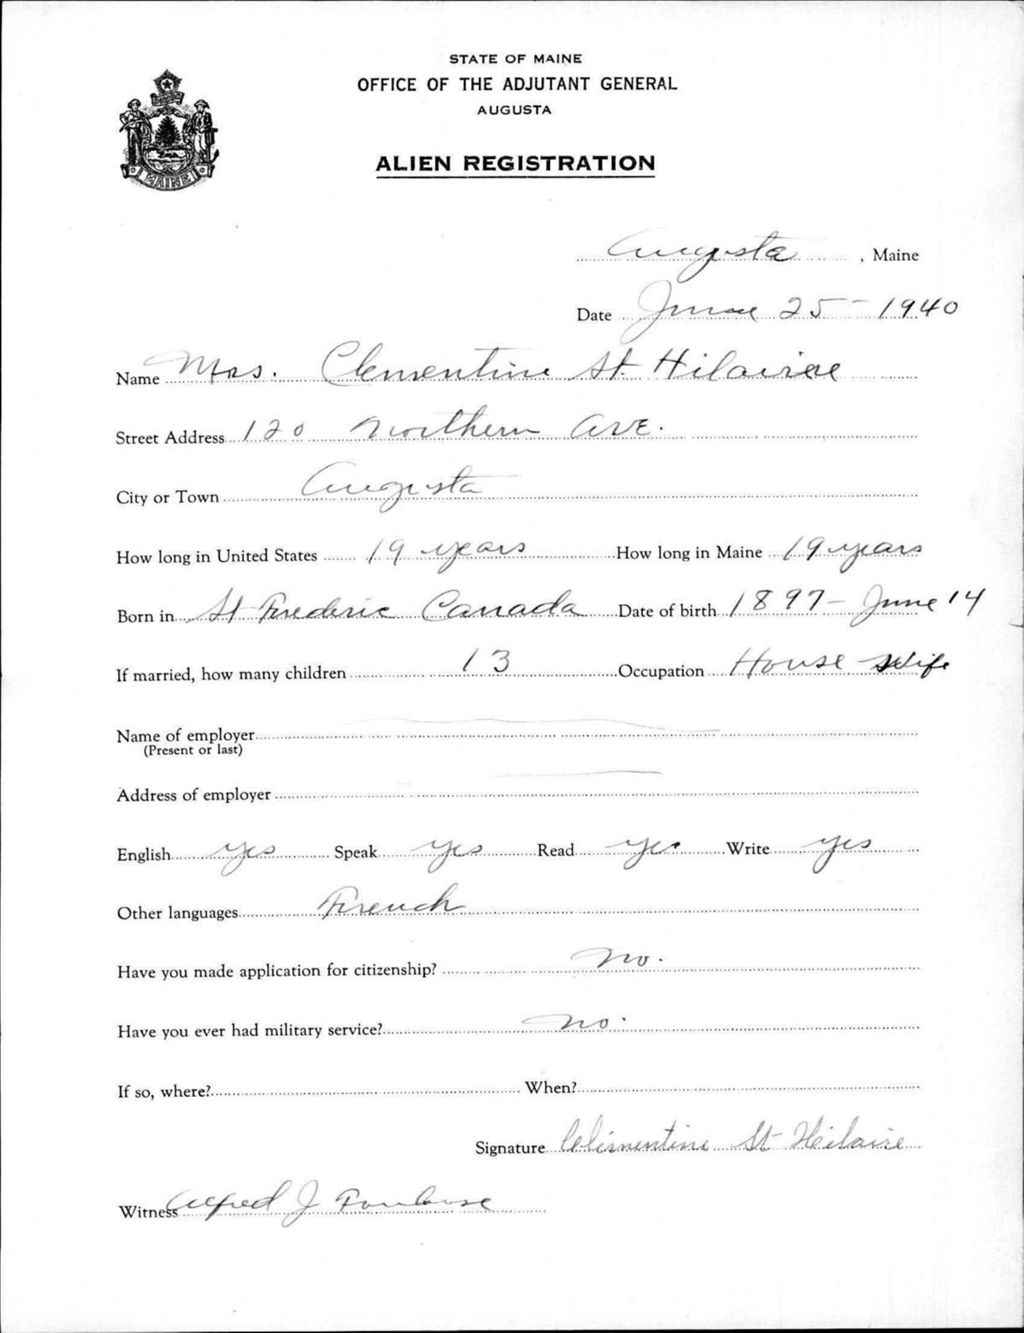 STATE OF MAINE
OFFICE OF THE ADJUTANT GENERAL
AUGUSTA
ALIEN REGISTRATION
MAINE
Augusta, Maine
Date June 25 - 1940
Name Mrs. Clementine St. Hilaire
Street Address 120 Northern Ave.
City or Town Augusta
How long in United States 19 years How long in Maine 19 years
Born in St Frederic Canada Date of birth 1897 - June 14
If married, how many children 13 Occupation House wife
Name of employer
(Present or last)
Address of employer
English yes Speak yes Read yes Write yes
Other languages French
Have you made application for citizenship? no.
Have you ever had military service? no.
If so, where? When?
Signature Clementine St Hilaire
Witness Alfred J